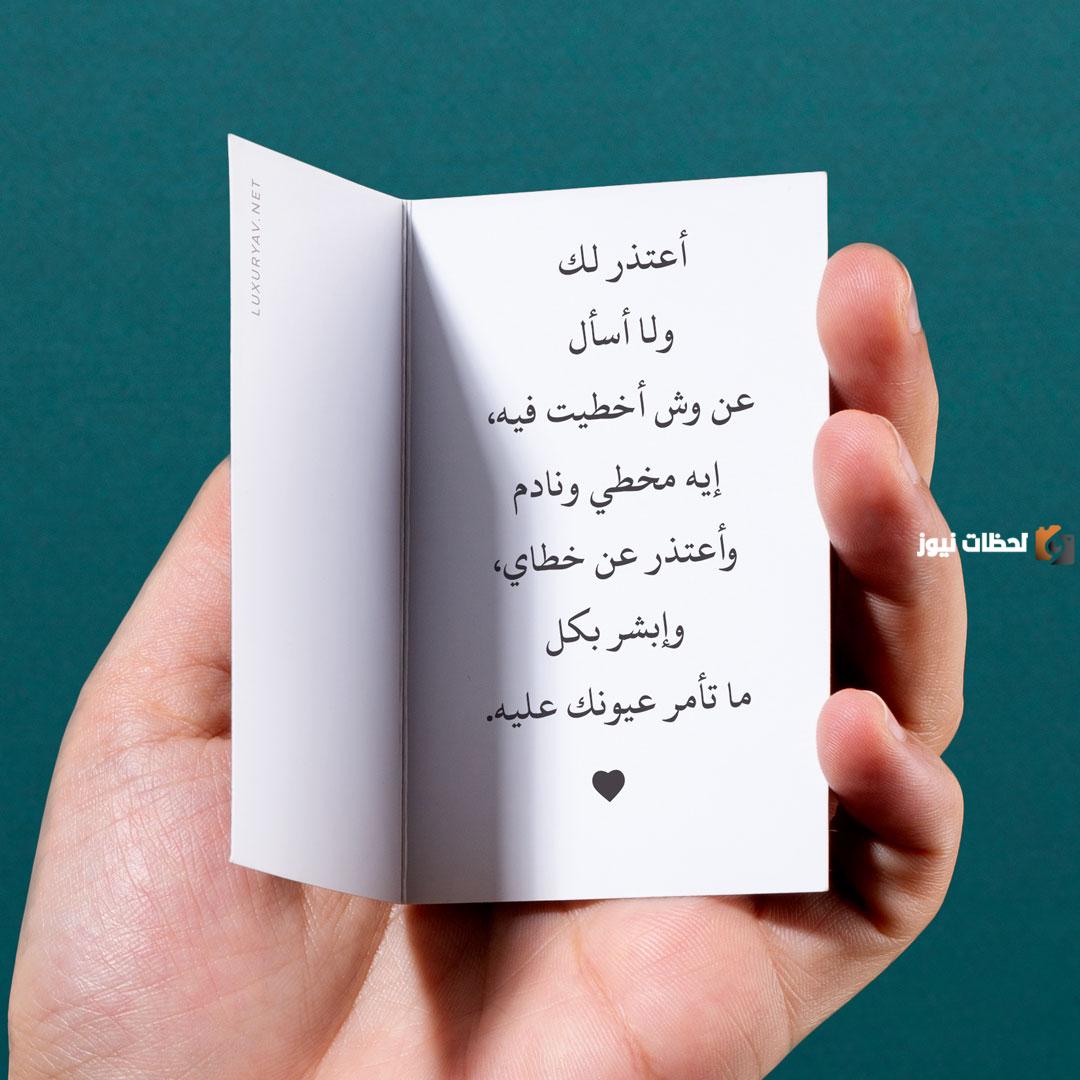 أعتذر لك
ولا أسأل
عن وش أخطيت فيه،
إيه مخطي ونادم
وأعتذر عن خطاي،
وإبشر بكل
ما تأمر عيونك عليه.
LUXURYAV.NET
لحظات نيوز